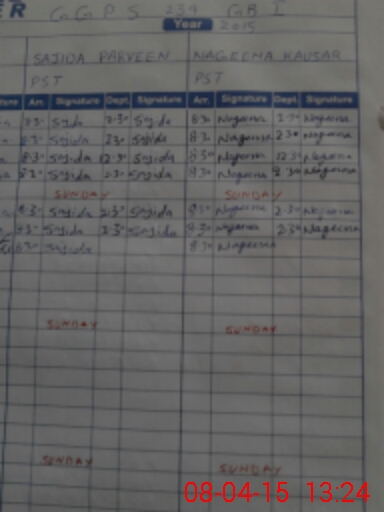 ER G G P S 239 GB I
Year 2015
SAJIDA PARVEEN NAGEENA KAUSAR
PST PST
Arr. Signature Dept. Signature Arr. Signature Dept. Signature
8.30 Sajida 2.30 Sajida 8.30 Nageena 2.30 Nageena
8.30 Sajida 2.30 Sajida 8.30 Nageena 2.30 Nageena
8.30 Sajida 12.30 Sajida 8.30 Nageena 12.30 Nageena
8.30 Sajida 2.30 Sajida 8.30 Nageena 2.30 Nageena
SUNDAY SUNDAY
8.30 Sajida 2.30 Sajida 8.30 Nageena 2.30 Nageena
8.30 Sajida 2.30 Sajida 8.30 Nageena 2.30 Nageena
8.30 Sajida 8.30 Nageena
SUNDAY SUNDAY
SUNDAY SUNDAY
08-04-15 13:24